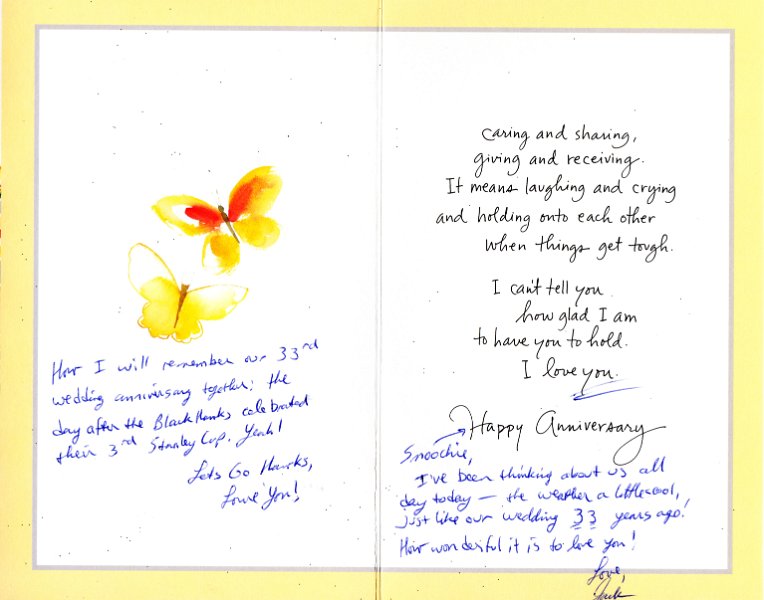 How I will remember our 33rd
wedding anniversary together: the
day after the BlackHawks celebrated
their 3rd Stanley Cup. Yeah!
Lets Go Hawks,
Love You!
Caring and sharing,
giving and receiving.
It means laughing and crying
and holding onto each other
when things get tough.
I can't tell you
how glad I am
to have you to hold.
I love you.
Happy Anniversary
Snoochie,
I've been thinking about us all
day today — the weather a little cool,
just like our wedding 33 years ago!
How wonderful it is to love you!
Love,
Jack